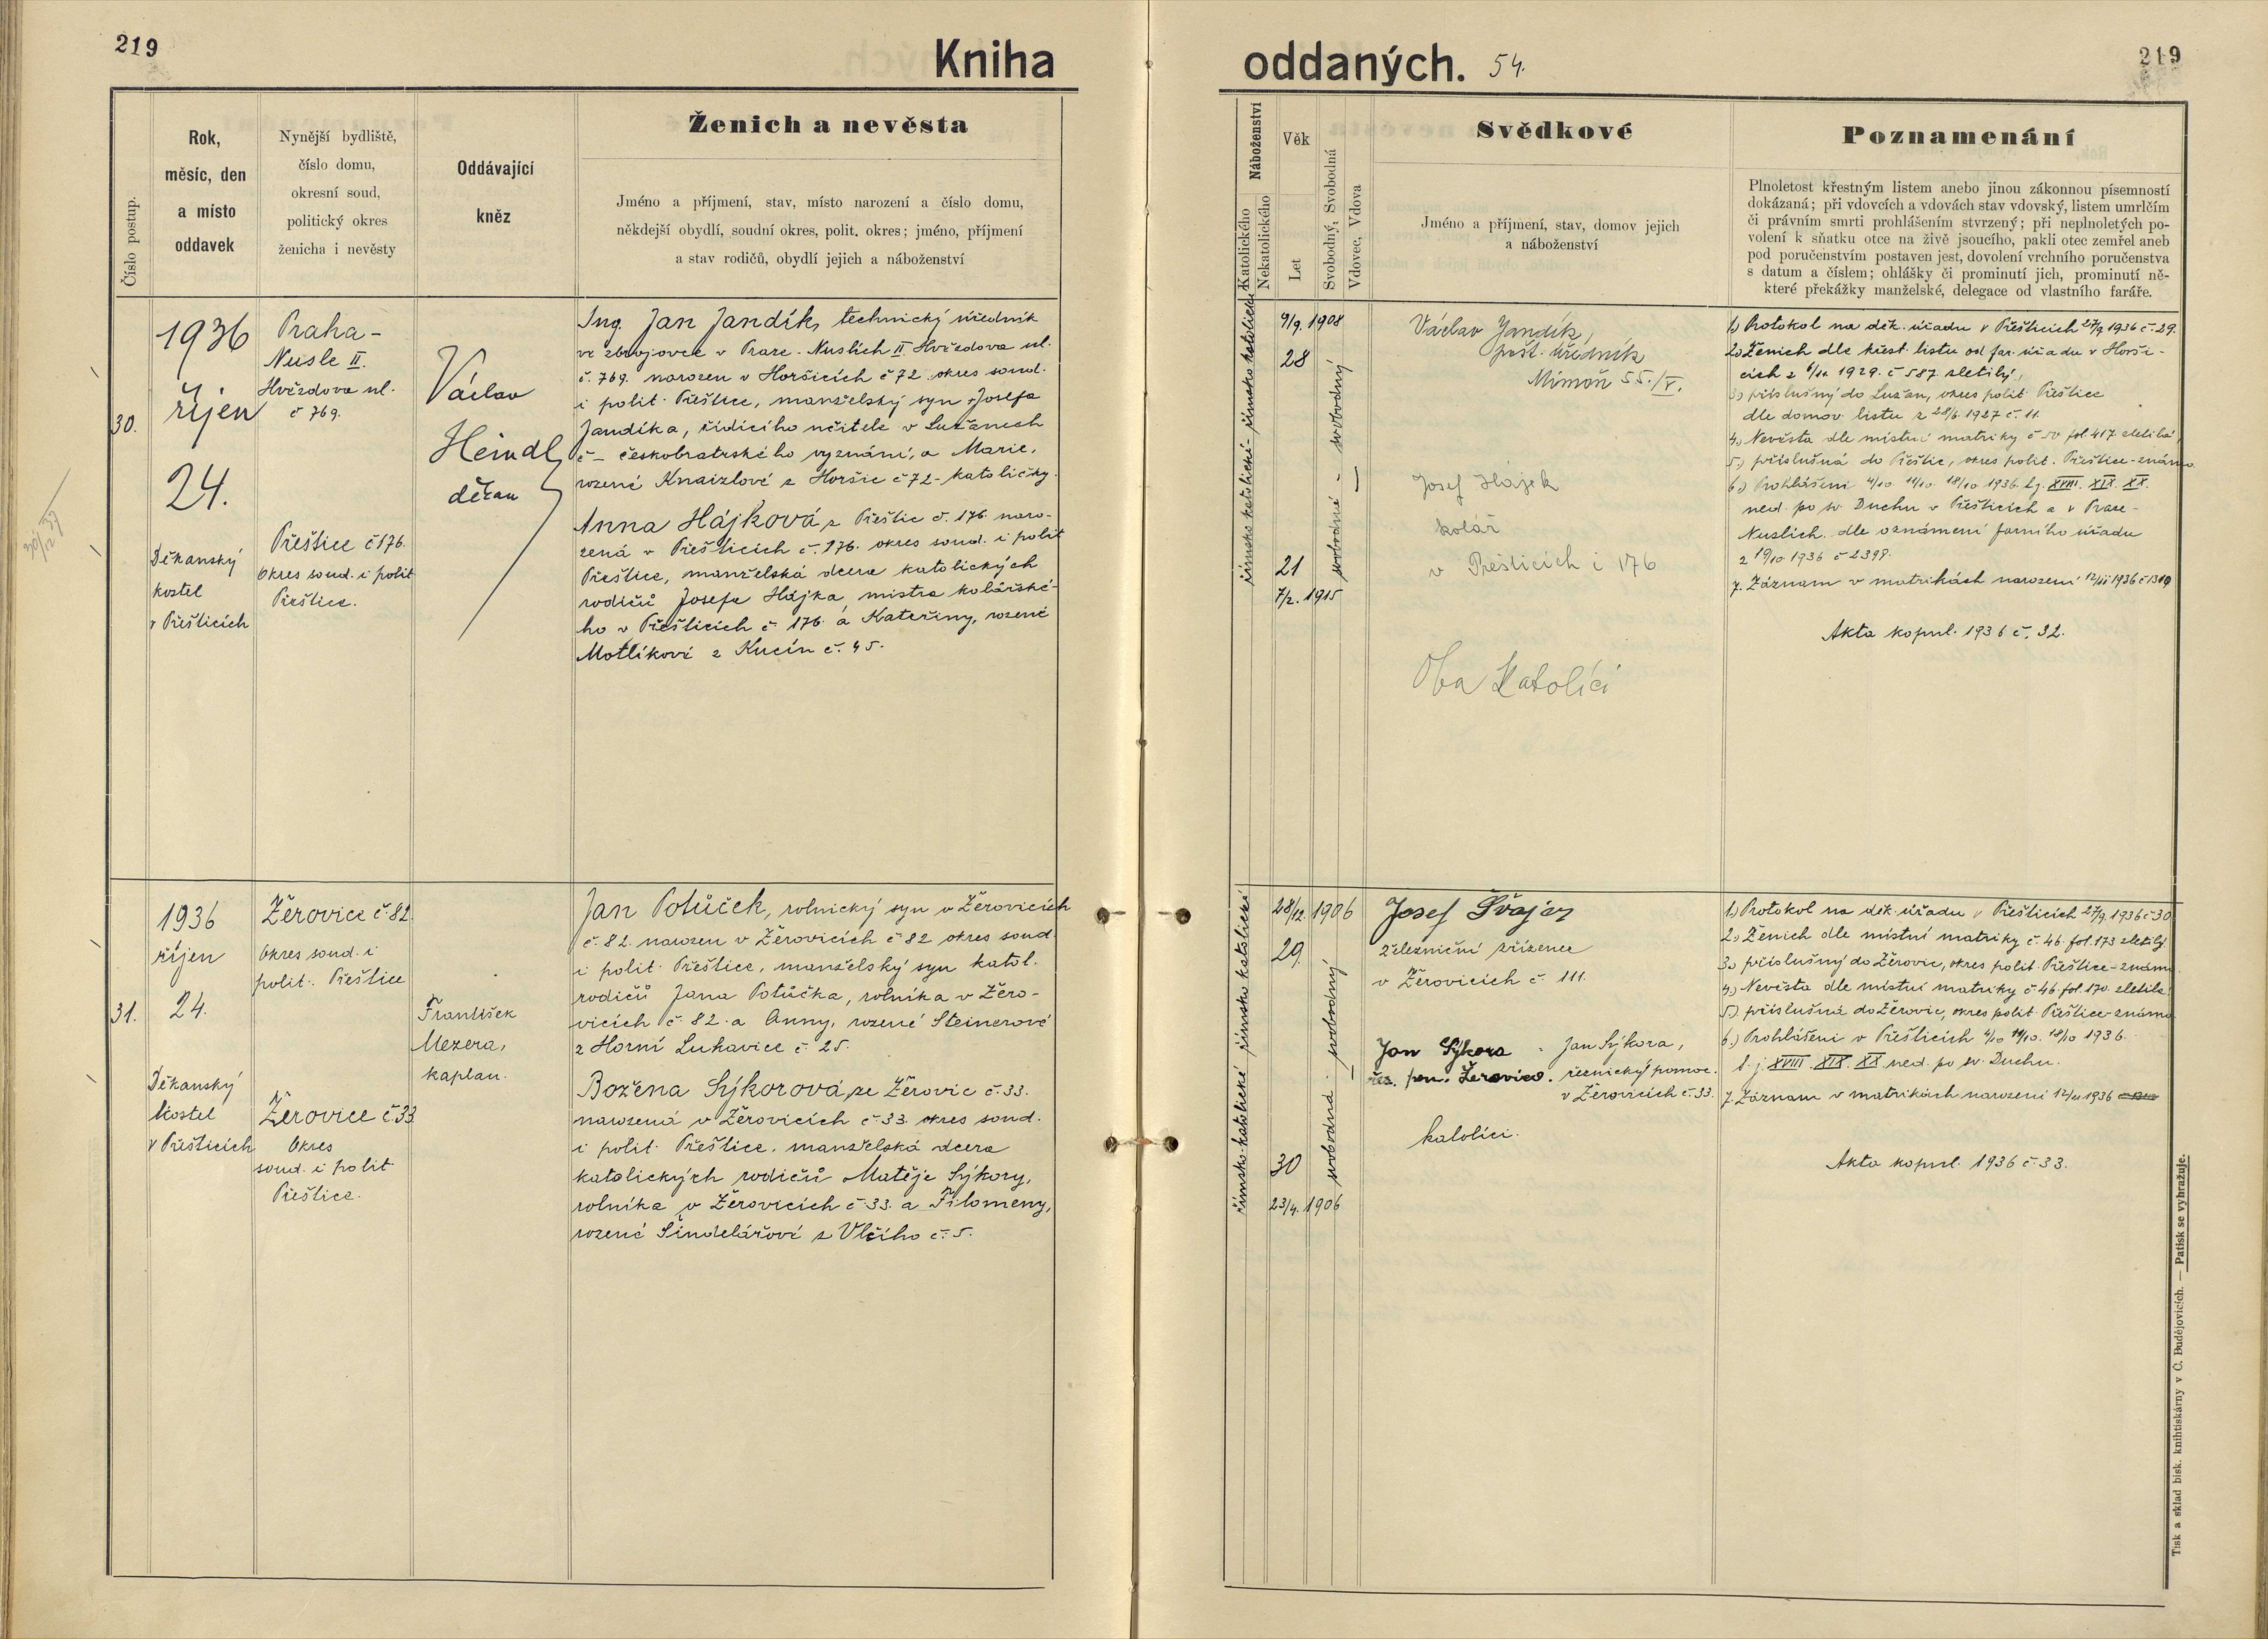 219
Kniha
oddaných. 54.
219
Číslo postup.
Rok,
měsíc, den
a místo
oddavek
Nynější bydliště,
číslo domu,
okresní soud,
politický okres
ženicha i nevěsty
Oddávající
kněz
Ženich a nevěsta
Jméno a příjmení, stav, místo narození a číslo domu,
někdejší obydlí, soudní okres, polit. okres; jméno, příjmení
a stav rodičů, obydlí jejich a náboženství
Náboženství
Katolického
Nekatolického
Věk
Let
Svobodný, Svobodná
Vdovec, Vdova
Svědkové
Jméno a příjmení, stav, domov jejich
a náboženství
Poznamenání
Plnoletost křestným listem anebo jinou zákonnou písemností
dokázaná; při vdovcích a vdovách stav vdovský, listem umrlčím
či právním smrti prohlášením stvrzený; při neplnoletých po-
volení k sňatku otce na živě jsoucího, pakli otec zemřel aneb
pod poručenstvím postaven jest, dovolení vrchního poručenstva
s datum a číslem; ohlášky či prominutí jich, prominutí ně-
které překážky manželské, delegace od vlastního faráře.
30.
1936
říjen
24.
Děkanský
kostel
v Přešticích
Praha-
Nusle II.
Hvězdova ul.
č 769.
Přeštice č 176.
Okres soud. i polit
Přeštice.
Václav
Heindl
děkan
Ing. Jan Jandík, technický úředník
ve zbrojovce v Praze-Nuslích II Hvězdova ul.
č. 769. narozen v Horšicích č 72. okres soud.
i polit. Přeštice, manželský syn Josefa
Jandíka, řídícího učitele v Lužanech
č - českobratrského vyznání, a Marie,
rozené Knaizlové z Horšic č 72 - katoličky.
Anna Hájková z Přeštic č. 176. naro-
zená v Přešticích č. 176. okres soud. i polit
Přeštice, manželská dcera katolických
rodičů Josefa Hájka, mistra kolářské-
ho v Přešticích č. 176. a Kateřiny, rozené
Motlíkové z Kucín č. 45.
římsko katolické - římsko katolické
9/9. 1908
28
21
7/2. 1915
svobodná - svobodný
Václav Jandík,
pošt. úředník
Mimoň 55./V.
Josef Hájek
kolář
v Přešticích č 176
Oba Katolíci
1.) Protokol na děk. úřadu v Přešticích 27/9 1936 č. 29.
2.) Ženich dle křest. listu od far. úřadu v Horši-
cích z 6/11. 1929. č 587. zletilý,
3.) příslušný do Lužan, okres polit. Přeštice
dle domov. listu z 28/6 1927 č. 11.
4.) Nevěsta dle místní matriky č 50 fol. 417. zletilá,
5.) příslušná do Přeštic, okres polit. Přeštice - známo
6.) Prohlášení 4/10 11/10. 18/10 1936. t.j. XVIII. XIX. XX.
ned. po sv. Duchu v Přešticích a v Praze-
Nuslích. dle oznámení farního úřadu
z 19/10 1936 č 2398.
7. Záznam v matrikách narození 12/11 1936 č 1319
Akta kopul. 1936 č. 32.
31.
1936
říjen
24.
Děkanský
kostel
v Přešticích
Žerovice č. 82.
Okres soud. i
polit. Přeštice
Žerovice č 33
Okres
soud. i polit
Přeštice.
František
Mezera,
kaplan.
Jan Potůček, rolnický syn v Žerovicích
č. 82. narozen v Žerovicích č 82 okres soud
i polit. Přeštice, manželský syn katol.
rodičů Jana Potůčka, rolníka v Žero-
vicích č. 82. a Anny, rozené Steinerové
z Horní Lukavice č. 25.
Božena Sýkorová, ze Žerovic č. 33.
narozená v Žerovicích č. 33. okres soud.
i polit. Přeštice, manželská dcera
katolických rodičů Matěje Sýkory,
rolníka v Žerovicích č 33. a Filomeny,
rozené Šindelářové z Vlčího č. 5.
římsko-katolické římsko katolické
28/12. 1906
29.
30
23/4. 1906
svobodná - svobodný
Josef Švajcr
železniční zřízenec
v Žerovicích č. 111.
Jan Sýkora - Jan Sýkora,
řez. pom. Žerovice. řeznický pomoc.
v Žerovicích č. 33.
katolíci.
1.) Protokol na děk. úřadu v Přešticích 27/9. 1936 č 30
2.) Ženich dle místní matriky č. 46. fol. 173 zletilý.
3.) příslušný do Žerovic, okres polit. Přeštice - známo.
4.) Nevěsta dle místní matriky č. 46. fol. 170. zletilá.
5.) příslušná do Žerovic, okres polit. Přeštice - známo
6.) Prohlášení v Přešticích 4/10 11/10. 18/10 1936.
t. j. XVIII XIX XX ned. po sv. Duchu.
7. Záznam v matrikách narození 12/11 1936
Akta kopul. 1936 č. 33.
Tisk a sklad bisk. knihtiskárny v Č. Budějovicích. — Patisk se vyhražuje.